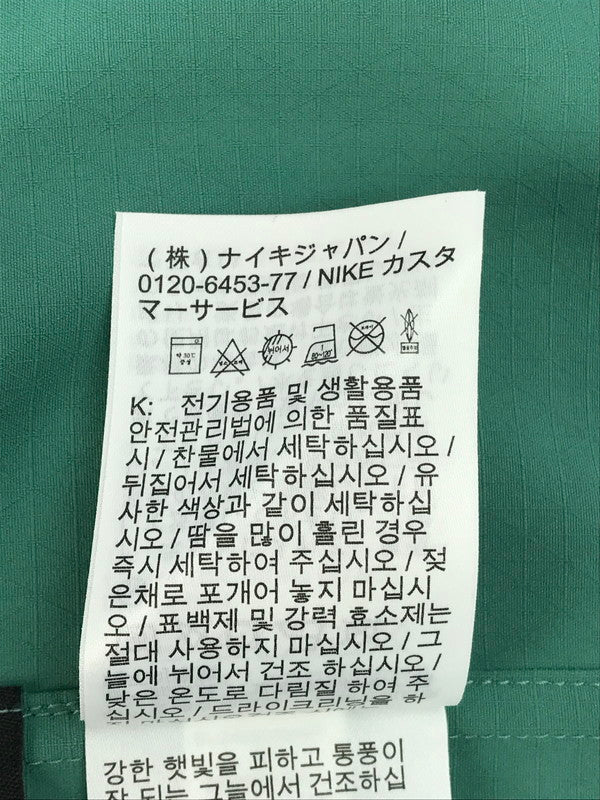 (株)ナイキジャパン /
0120-6453-77 / NIKE カスタ
マーサービス
약 30℃
중성
뉘어서
80~120℃
K: 전기용품 및 생활용품
안전관리법에 의한 품질표
시 / 찬물에서 세탁하십시오 /
뒤집어서 세탁하십시오 / 유
사한 색상과 같이 세탁하십
시오 / 땀을 많이 흘린 경우
즉시 세탁하여 주십시오 / 젖
은채로 포개어 놓지 마십시
오 / 표백제 및 강력 효소제는
절대 사용하지 마십시오 / 그
늘에 뉘어서 건조 하십시오 /
낮은 온도로 다림질 하여 주
십시오 / 드라이크리닝을 하
강한 햇빛을 피하고 통풍이
잘 되는 그늘에서 건조하십